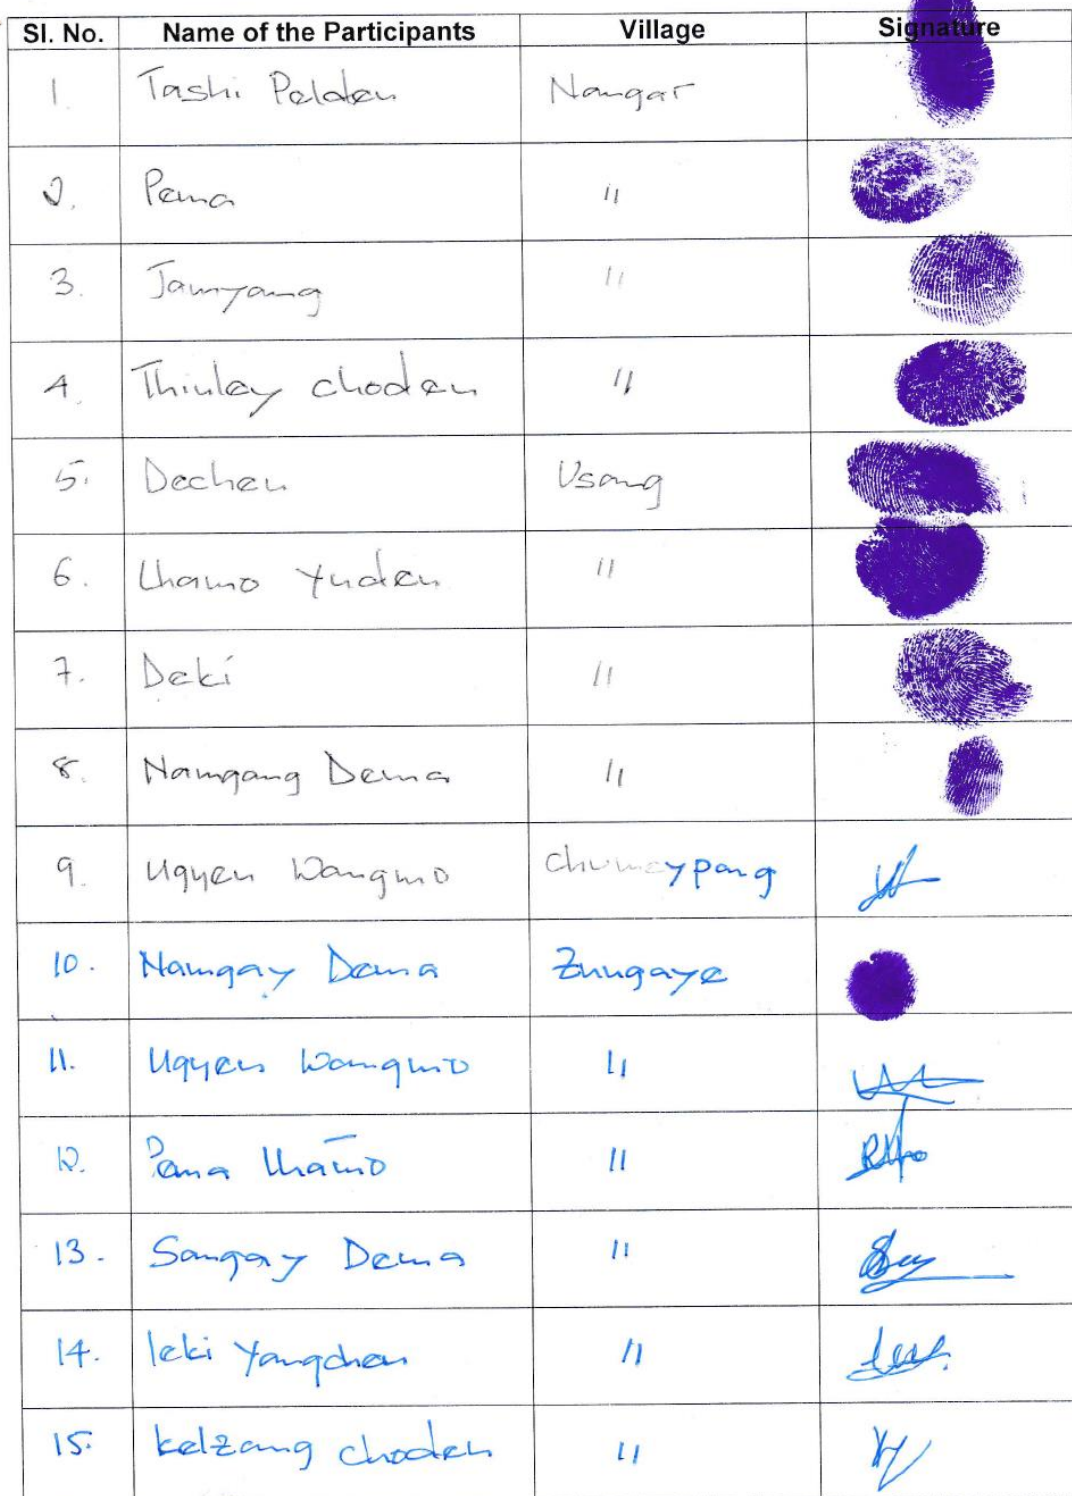 Sl. No. Name of the Participants Village Signature
1. Tashi Pelden Nangar
2. Pema "
3. Jamyang "
4. Thinley choden "
5. Dechen Usang
6. Lhamo Yuden "
7. Deki "
8. Namgang Dema "
9. Ugyen Wangmo Chumeypang
10. Namgay Dema Zungaye
11. Ugyen Wangmo "
12. Pema Lhamo "
13. Sangay Dema "
14. leki Yangchen "
15. kelzang choden "